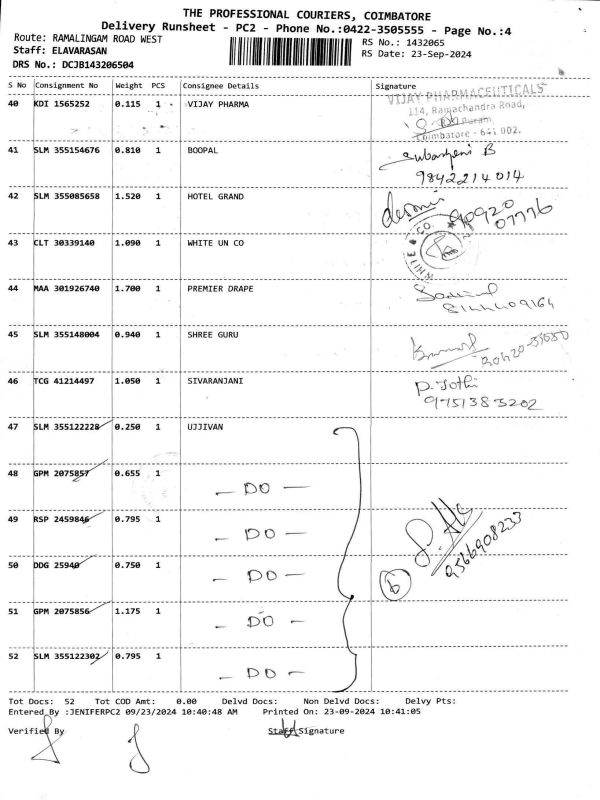 THE PROFESSIONAL COURIERS, COIMBATORE
Delivery Runsheet - PC2 - Phone No.:0422-3505555 - Page No.:4
Route: RAMALINGAM ROAD WEST
RS No.: 1432065
Staff: ELAVARASAN
RS Date: 23-Sep-2024
DRS No.: DCJB143206504
S No Consignment No Weight PCS Consignee Details Signature
40 KDI 1565252 0.115 1 VIJAY PHARMA
VIJAY PHARMACEUTICALS
114, Ramachandra Road,
Puram,
Coimbatore - 641 002.
41 SLM 355154676 0.810 1 BOOPAL
B
9842214014
42 SLM 355085658 1.520 1 HOTEL GRAND
90920
07776
43 CLT 30339140 1.090 1 WHITE UN CO
44 MAA 301926740 1.700 1 PREMIER DRAPE
8144409164
45 SLM 355148004 0.940 1 SHREE GURU
46 TCG 41214497 1.050 1 SIVARANJANI
P. Jothi
9751383202
47 SLM 355122228 0.250 1 UJJIVAN
48 GPM 2075857 0.655 1
- DO -
49 RSP 2459846 0.795 1
- DO -
9566908233
50 DDG 25940 0.750 1
- DO -
6
51 GPM 2075856 1.175 1
- DO -
52 SLM 355122302 0.795 1
- DO -
Tot Docs: 52 Tot COD Amt: 0.00 Delvd Docs: Non Delvd Docs: Delvy Pts:
Entered By :JENIFERPC2 09/23/2024 10:40:48 AM Printed On: 23-09-2024 10:41:05
Verified By Staff Signature